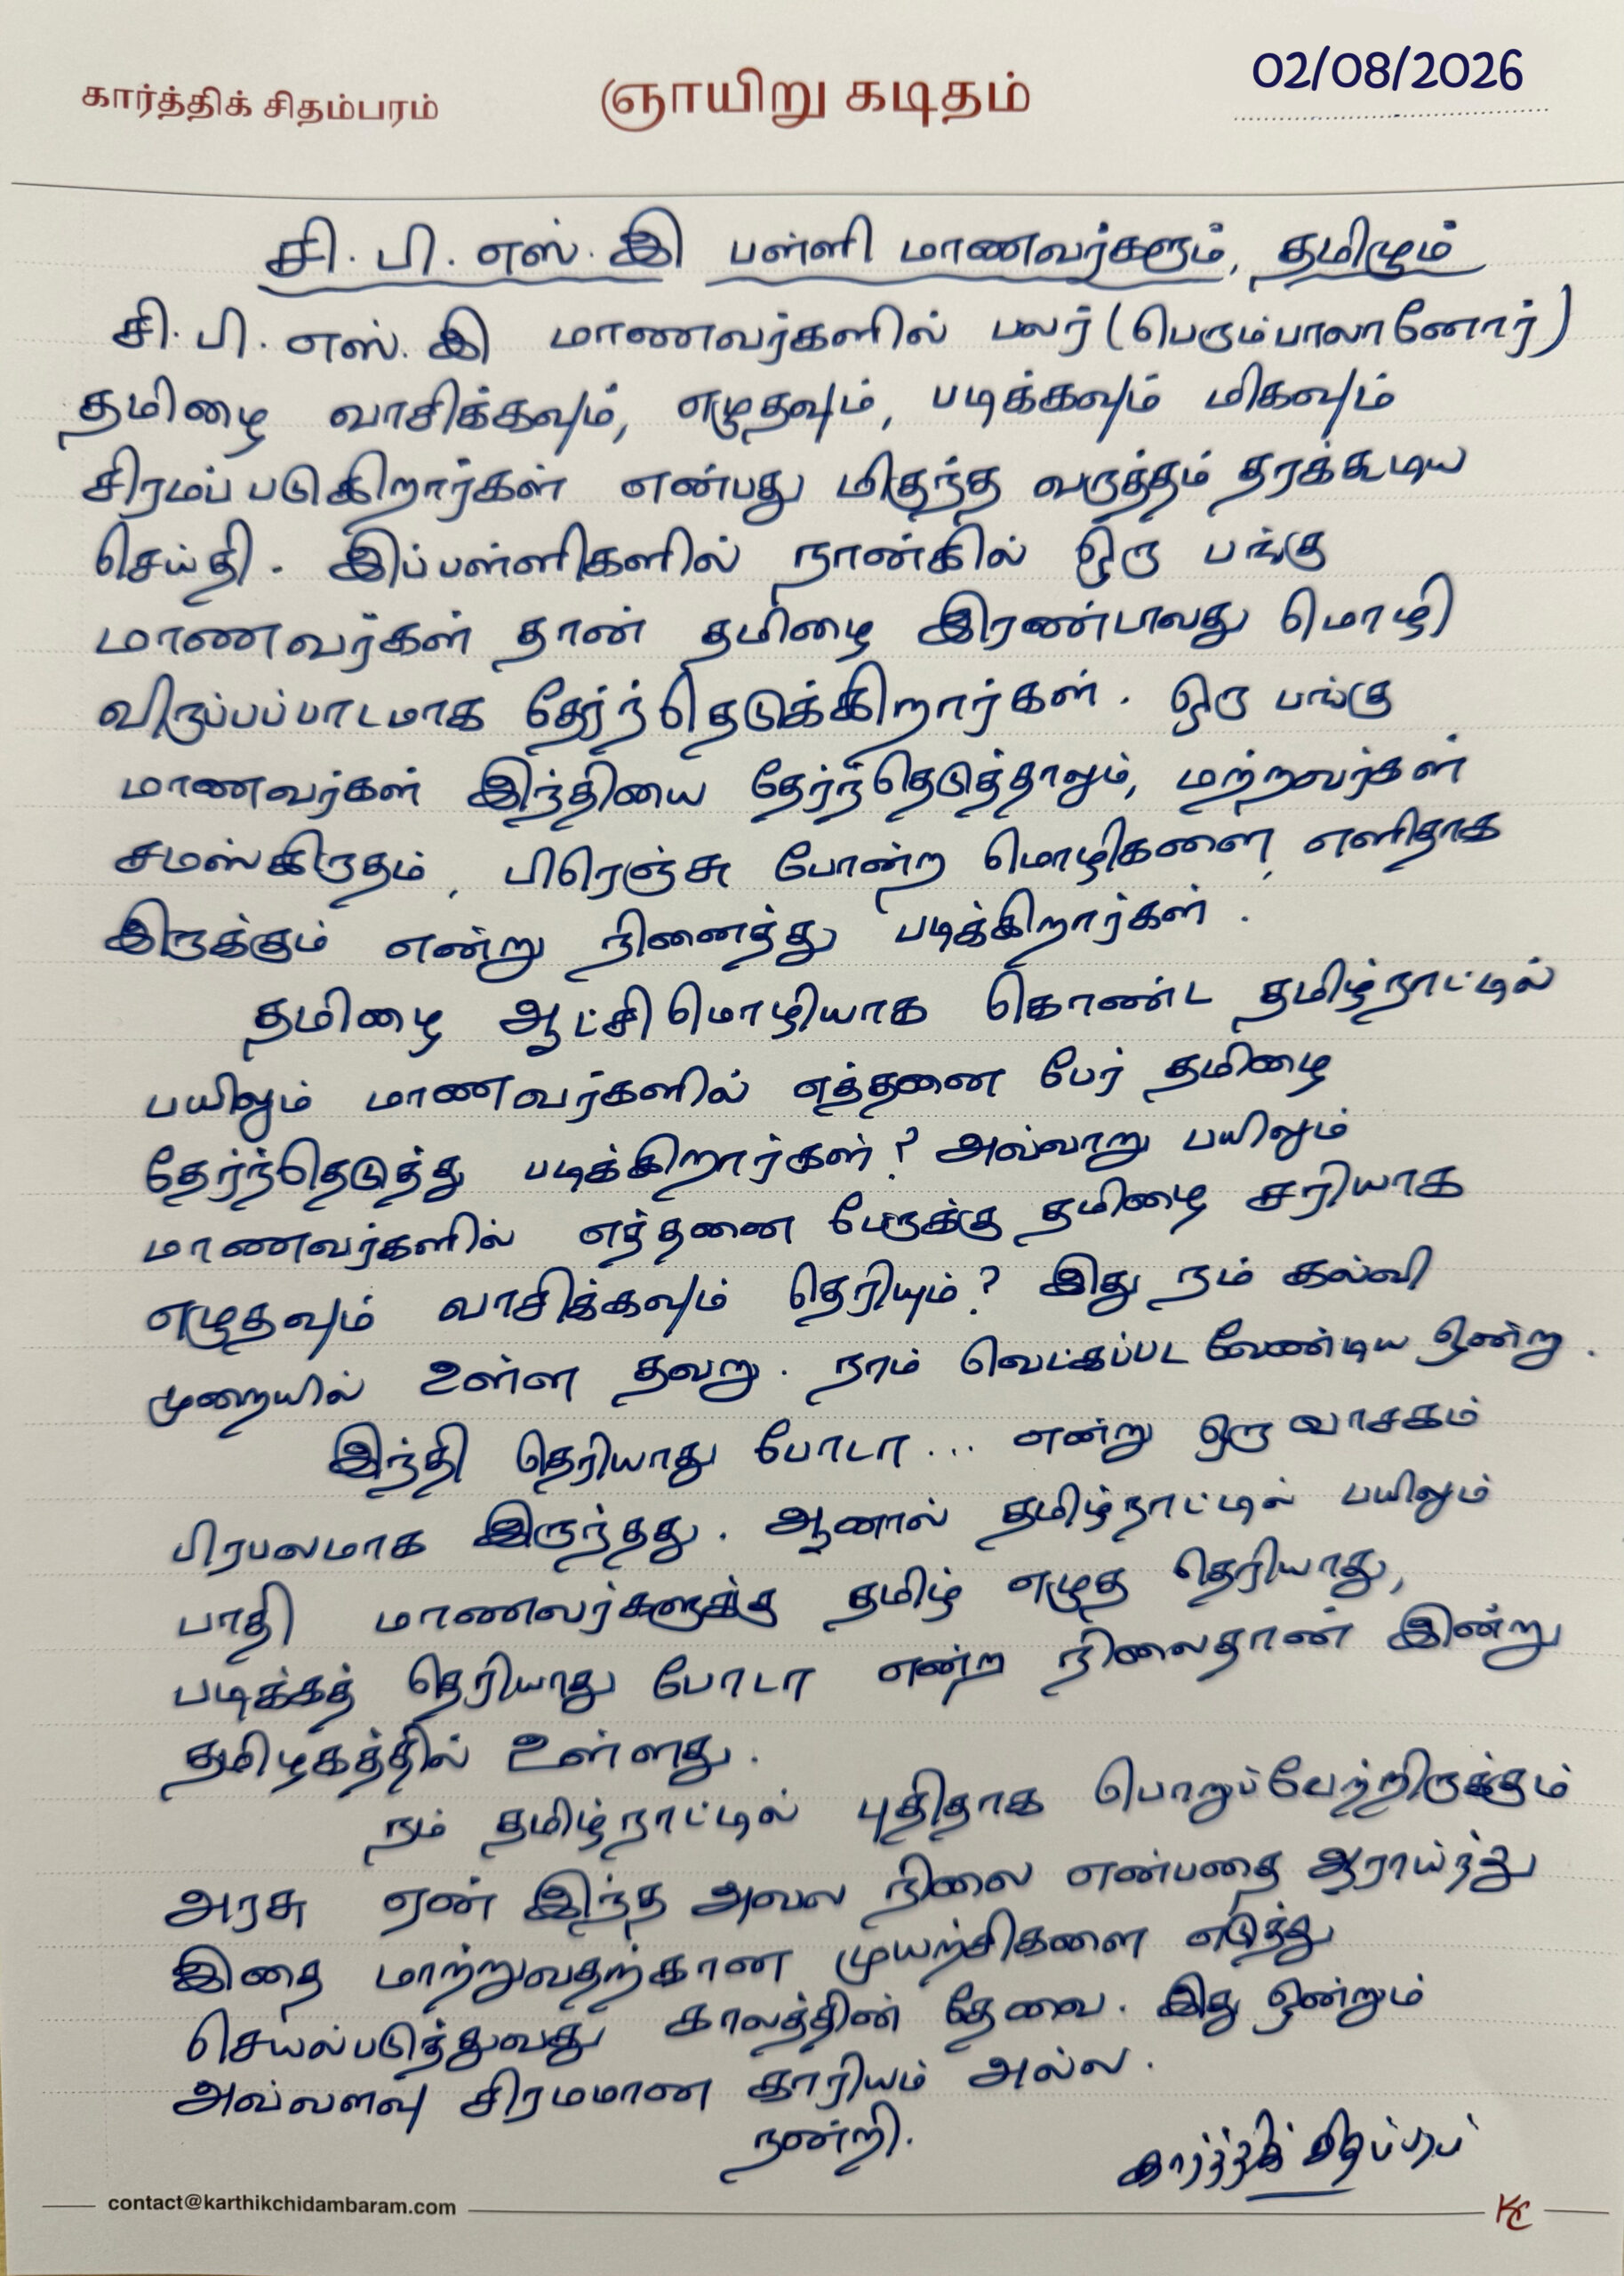 கார்த்திக் சிதம்பரம்
ஞாயிறு கடிதம்
02/08/2026
சி. பி. எஸ். இ பள்ளி மாணவர்களும், தமிழும்
சி. பி. எஸ். இ மாணவர்களில் பலர் (பெரும்பாலானோர்)
தமிழை வாசிக்கவும், எழுதவும், படிக்கவும் மிகவும்
சிரமப் படுகிறார்கள் என்பது மிகுந்த வருத்தம் தரக்கூடிய
செய்தி. இப்பள்ளிகளில் நான்கில் ஒரு பங்கு
மாணவர்கள் தான் தமிழை இரண்டாவது மொழி
விருப்பப்பாடமாக தேர்ந்தெடுக்கிறார்கள். ஒரு பங்கு
மாணவர்கள் இந்தியை தேர்ந்தெடுத்தாலும், மற்றவர்கள்
சமஸ்கிருதம், பிரெஞ்சு போன்ற மொழிகளை, எளிதாக
இருக்கும் என்று நினைத்து படிக்கிறார்கள்.
தமிழை ஆட்சி மொழியாக கொண்ட தமிழ்நாட்டில்
பயிலும் மாணவர்களில் எத்தனை பேர் தமிழை
தேர்ந்தெடுத்து படிக்கிறார்கள்? அவ்வாறு பயிலும்
மாணவர்களில் எத்தனை பேருக்கு தமிழை சரியாக
எழுதவும் வாசிக்கவும் தெரியும்? இது நம் கல்வி
முறையில் உள்ள தவறு. நாம் வெட்கப்பட வேண்டிய ஒன்று.
இந்தி தெரியாது போடா... என்று ஒரு வாசகம்
பிரபலமாக இருந்தது. ஆனால் தமிழ்நாட்டில் பயிலும்
பாதி மாணவர்களுக்கு தமிழ் எழுத தெரியாது,
படிக்கத் தெரியாது போடா என்ற நிலைதான் இன்று
தமிழகத்தில் உள்ளது.
நம் தமிழ்நாட்டில் புதிதாக பொறுப்பேற்றிருக்கும்
அரசு ஏன் இந்த அவல நிலை என்பதை ஆராய்ந்து
இதை மாற்றுவதற்கான முயற்சிகளை எடுத்து
செயல்படுத்துவது காலத்தின் தேவை. இது ஒன்றும்
அவ்வளவு சிரமமான காரியம் அல்ல.
நன்றி.
கார்த்திக் சிதம்பரம்
contact@karthikchidambaram.com
KC